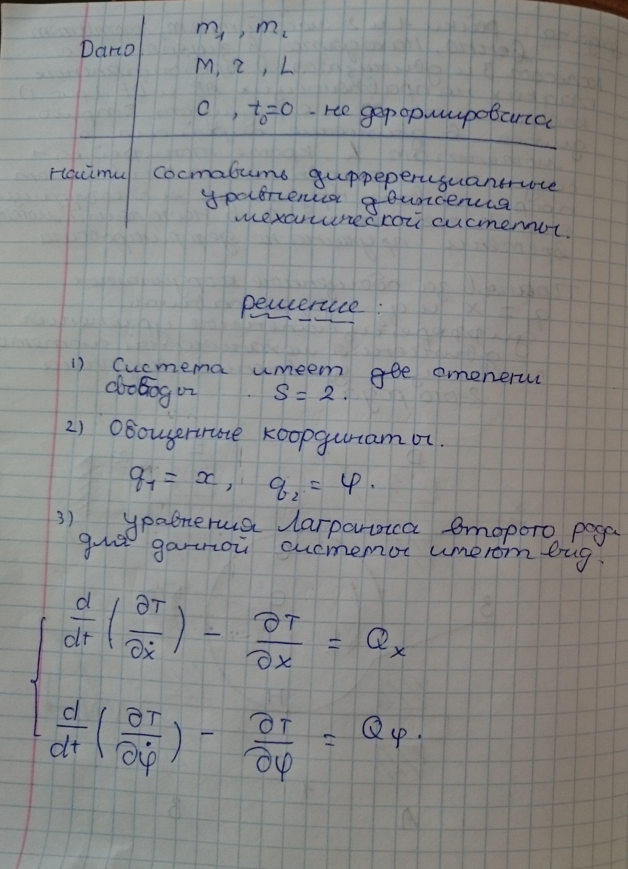 Дано
m₁, m₂
M, r, L
c, t₀=0 - не деформирована
Найти
составить дифференциальные
уравнения движения
механической системы.
Решение:
1) система имеет две степени
свободы. S = 2.
2) Обощенные координаты.
q₁ = x, q₂ = φ.
3) уравнения Лагранжа второго рода
для данной системы имеют вид.
d/dt (∂T/∂ẋ) - ∂T/∂x = Qₓ
d/dt (∂T/∂φ̇) - ∂T/∂φ = Qφ.